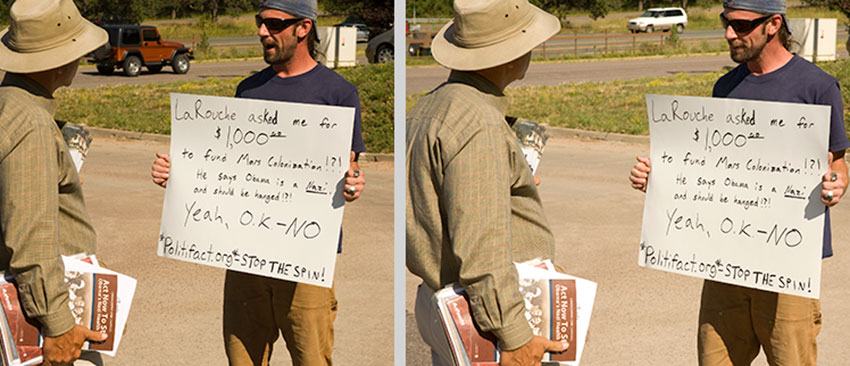 LaRouche asked me for
$1,000.00
to fund Mars Colonization!?!
He says Obama is a Nazi
and should be hanged!?!
Yeah, O.K.-NO
*Politifact.org*-STOP THE SPIN!
LaRouche asked me for
$1,000.00
to fund Mars Colonization!?!
He says Obama is a Nazi
and should be hanged!?!
Yeah, O.K.-NO
*Politifact.org*-STOP THE SPIN!
Act Now To S
Obama's Nazi Health
Act Now To St
Obama's Nazi Health